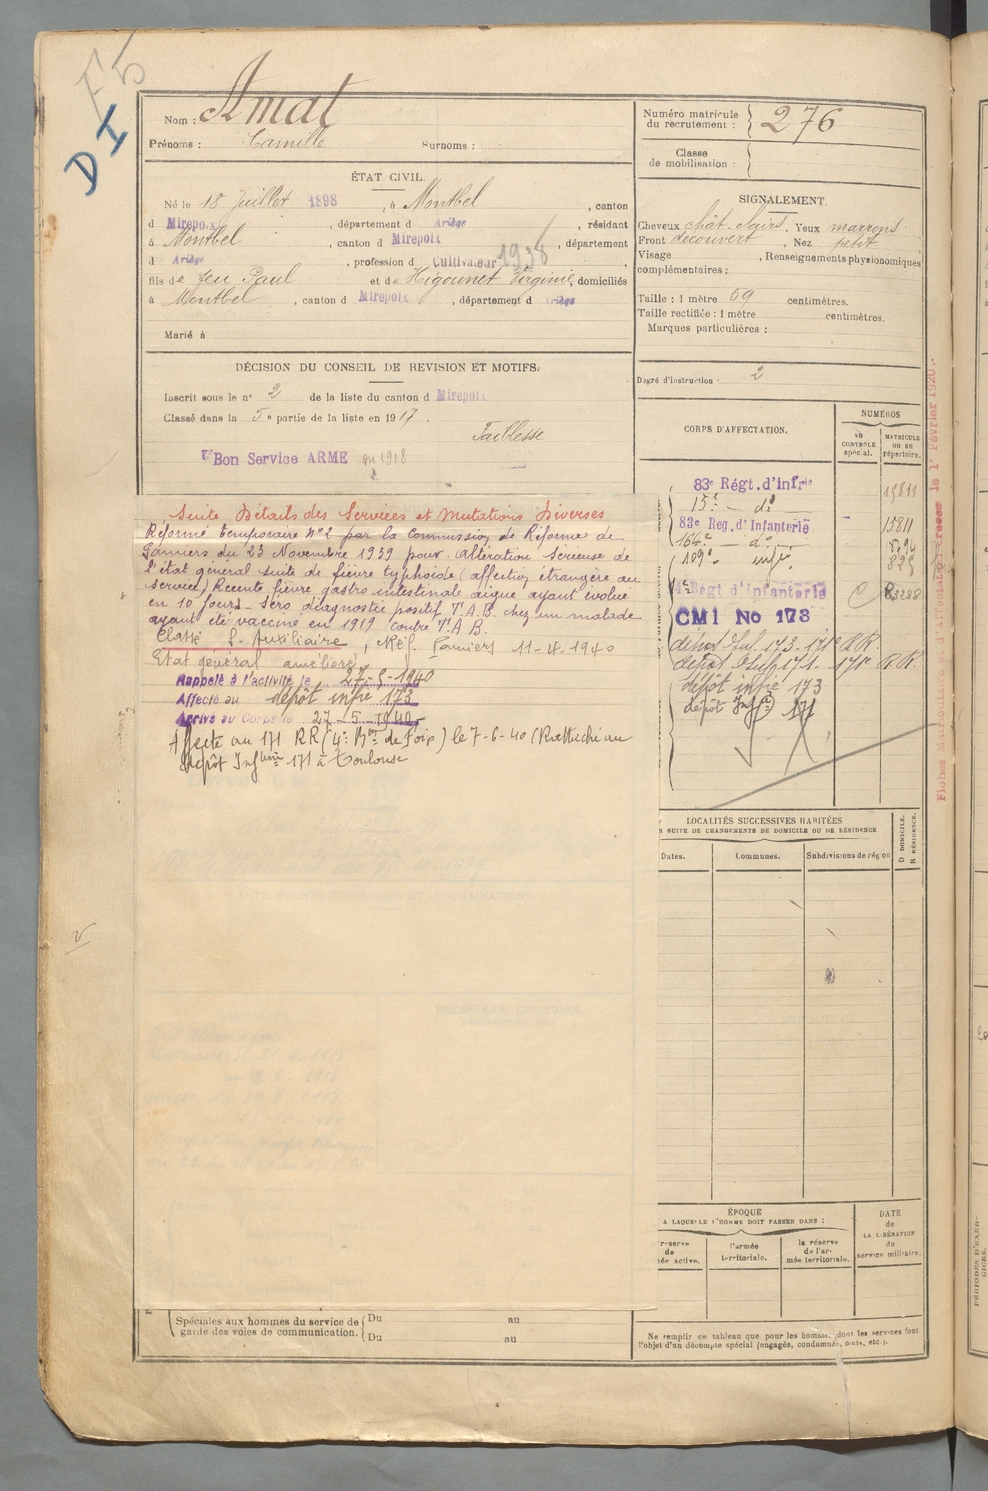 F5
D I
Nom : Amat
Prénoms : Camille Surnoms :
ÉTAT CIVIL.
Né le 18 Juillet 1898, à Montbel, canton
d Mirepoix, département d Ariège, résidant
à Montbel, canton d Mirepoix, département
d Ariège, profession d Cultivateur 1938
fils de feu Paul et de Higounet Virginie, domiciliés
à Montbel, canton d Mirepoix, département d Ariège
Marié à
DÉCISION DU CONSEIL DE REVISION ET MOTIFS.
Inscrit sous le n° 2 de la liste du canton d Mirepoix
Classé dans la 5e partie de la liste en 1917.
Faiblesse
Bon Service ARME en 1918
Suite Détails des Services et Mutations Diverses
Réformé temporaire n° 2 par la Commission de Réforme de
Pamiers du 23 Novembre 1939 pour : altération sérieuse de
l'état général suite de fièvre typhoïde (affection étrangère au
service) Récente fièvre gastro intestinale aigue ayant évolué
en 10 jours - séro diagnostic positif T.A.B. chez un malade
ayant été vacciné en 1919 contre T.A B.
Classé S. Auxiliaire, Réf. Pamiers 11-4-1940
Etat général amélioré
Rappelé à l'activité le 27-5-1940
Affecté au dépôt infie 173
Arrivé au Corps le 27-5-1940
Affecté au 171 RR (4e Bon de Foix) le 7-6-40 (Rattaché au
dépôt Inf 171 à Toulouse
Spéciales aux hommes du service de garde des voies de communication.
Du au
Du au
Numéro matricule du recrutement : 276
Classe de mobilisation :
SIGNALEMENT.
Cheveux chât. clairs. Yeux marrons
Front découvert, Nez petit
Visage, Renseignements physionomiques
complémentaires :
Taille : 1 mètre 59 centimètres.
Taille rectifiée : 1 mètre centimètres.
Marques particulières :
Degré d'instruction : 2
CORPS D'AFFECTATION.
NUMÉROS
AU CONTRÔLE spécial.
MATRICULE OU AU répertoire.
83e Régt. d'Infrie
15e d° 19811
83e Reg. d'Infanterie 15811
164e d°
109e infie. 825
Régt d'Infanterie R3288
CMI No 173
dépôt
dépôt
dépôt infie 173
dépôt Infie 171
Fiches Matricule et d'Affectation créées le 1er Février 1920.
LOCALITÉS SUCCESSIVES HABITÉES
R SUITE DE CHANGEMENTS DE DOMICILE OU DE RÉSIDENCE
Dates. Communes. Subdivisions de région
D DOMICILE. R RÉSIDENCE.
ÉPOQUE
A LAQUELLE L'HOMME DOIT PASSER DANS :
l'armée territoriale.
la réserve de l'armée territoriale.
DATE de LA LIBÉRATION du service militaire.
Ne remplir ce tableau que pour les hommes dont les services font
l'objet d'un décompte spécial (engagés, condamnés, omis, etc.).
PÉRIODES D'EXER-
CICES.